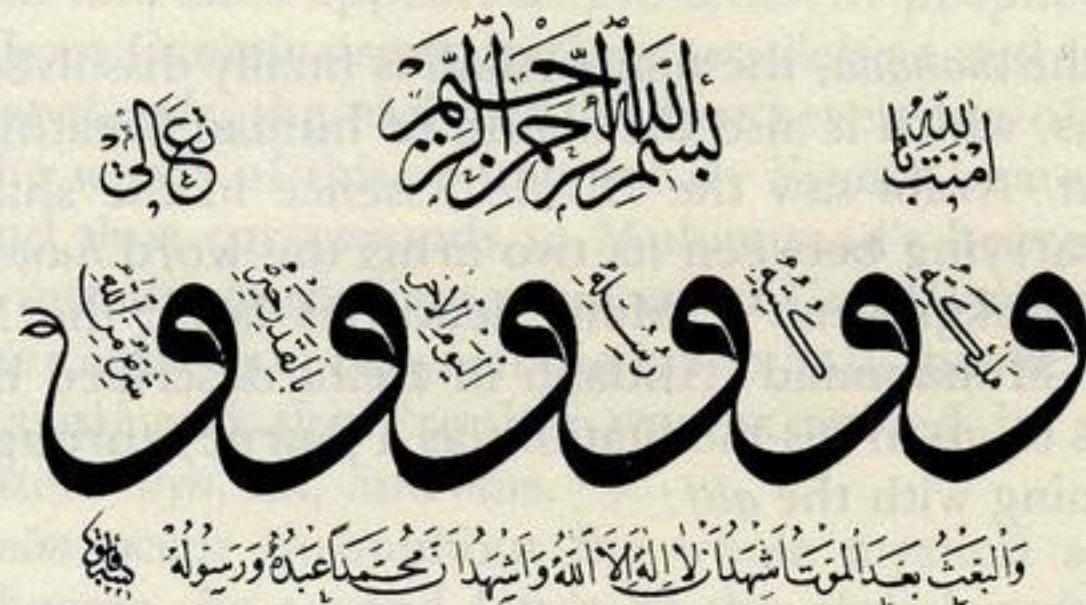 بسم الله الرحمن الرحيم
امنت بالله تعالى
و ملئكته و كتبه و رسله و اليوم الاخر و بالقدر خيره و شره من الله
وَالْبَعْثُ بَعْدَ الْمَوْتِ اَشْهَدُ اَنْ لَا اِلٰهَ اِلَّا اللهُ وَاَشْهَدُ اَنَّ مُحَمَّدًا عَبْدُهُ وَرَسُولُهُ